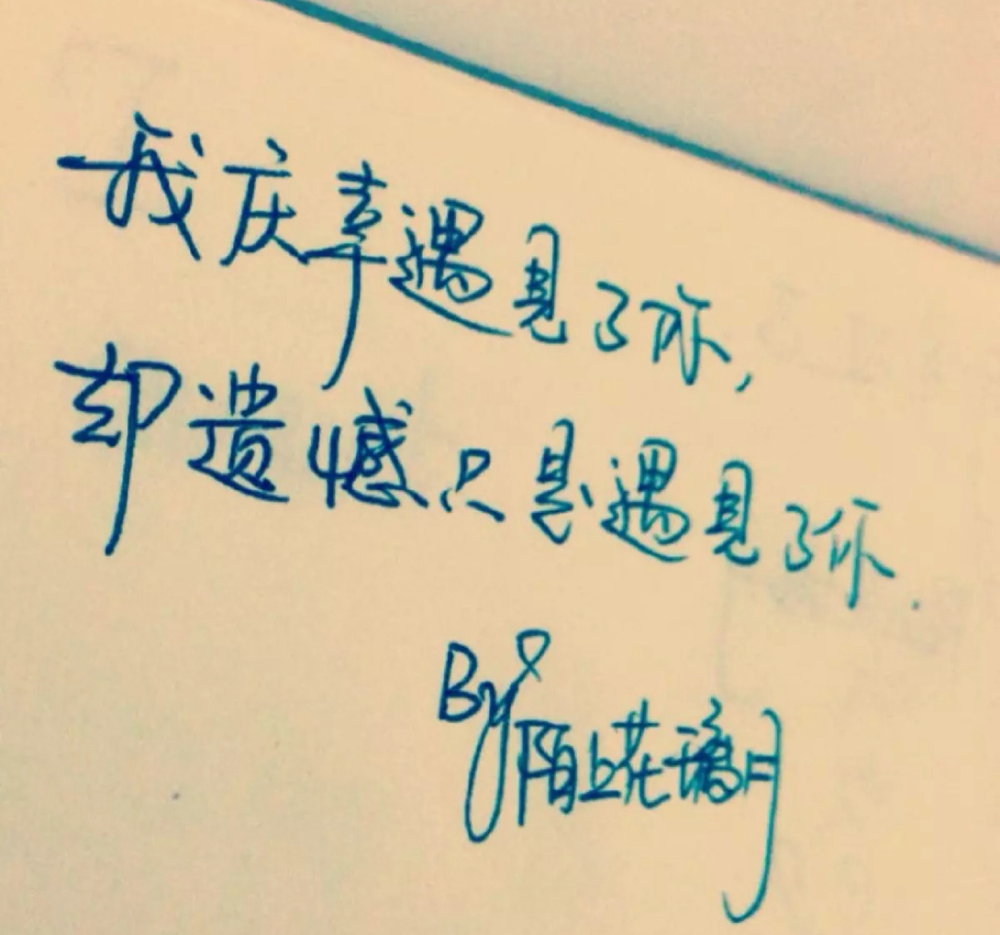 我庆幸遇见了你,
却遗憾只是遇见了你.
By 陌上花璃月